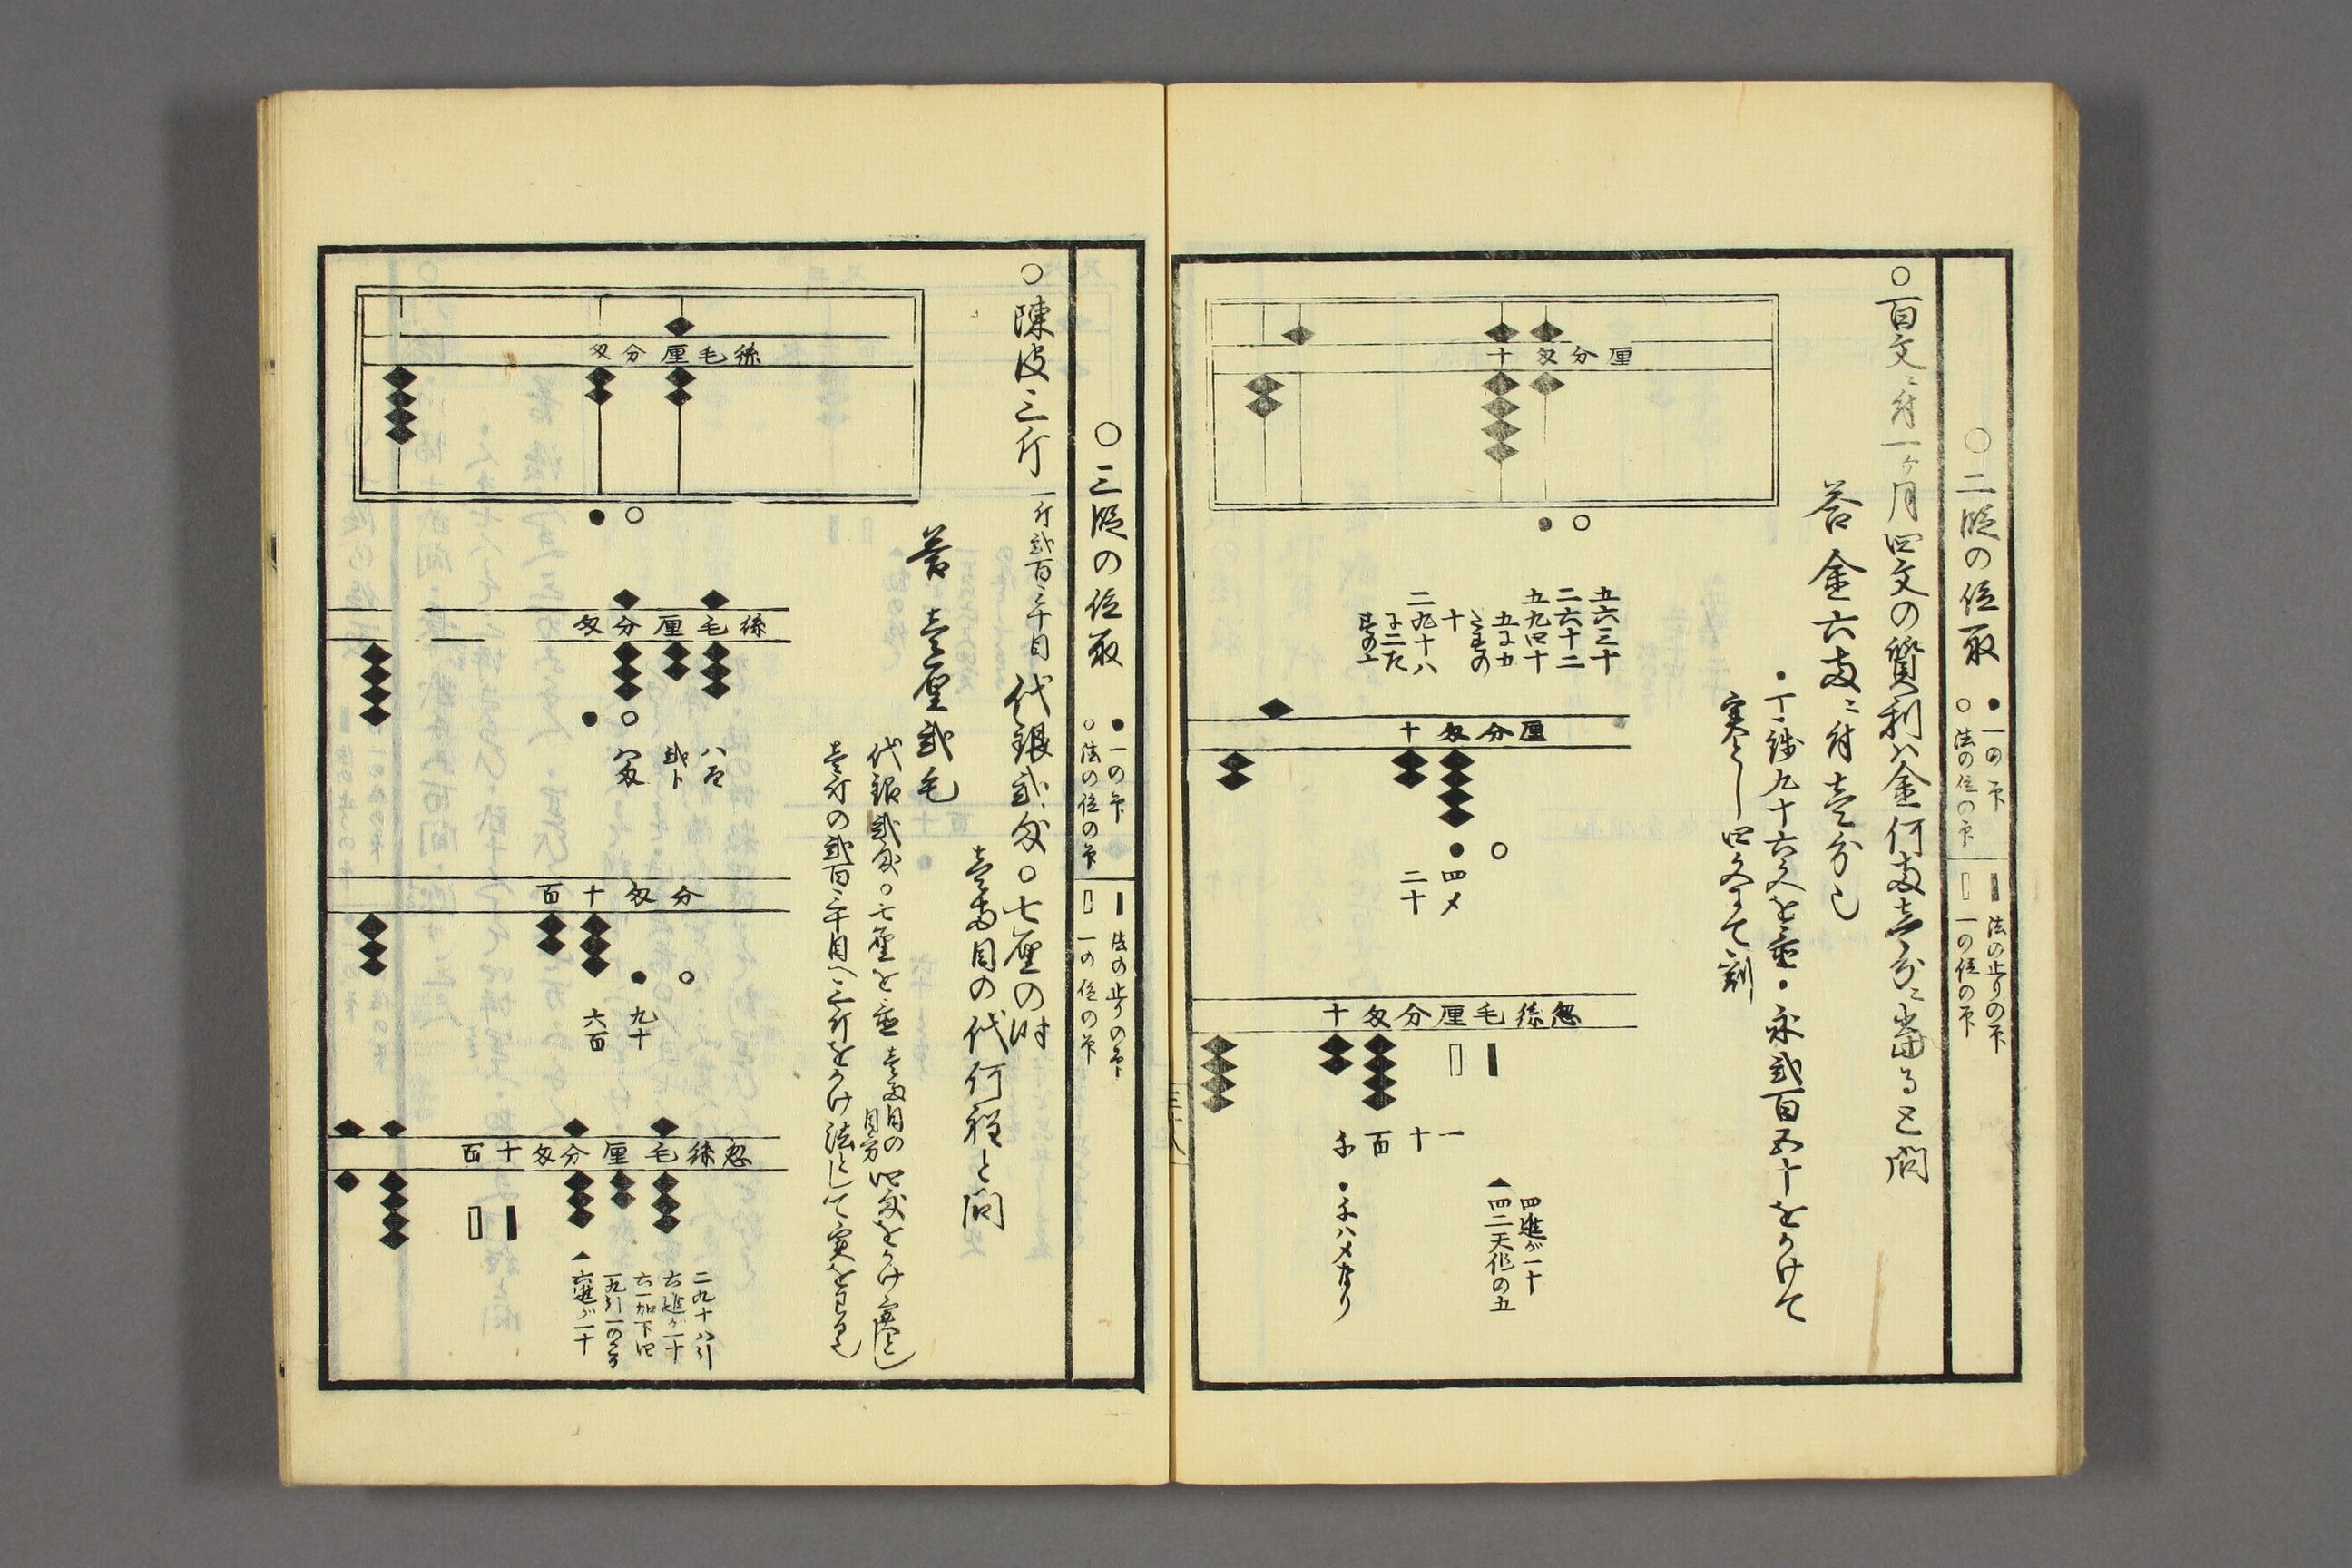 ○二段の位取
●一の下
○法の位の下
▮法の止りの下
▯一の位の下
○百文ニ付一ヶ月四文の質利ハ金何両壱分ニ當ると問
答 金六両ニ付壱分也
・丁錢九十六文を置・永弐百五十をかけて
実とし四文にて割
十匁分厘
●○
五六三十
二六十二
五九四十
五
十
二九十八
十匁分厘
●○
四メ
二十
十匁分厘毛絲忽
一
十
百
千
四進が一十
▲四二天作の五
・千ハメなり
○三段の位取
●一の下
○法の位の下
▮法の止りの下
▯一の位の下
○陳皮三斤一斤弐百三十目代銀弐匁○七厘の時
壱両目の代何程と問
答 壱厘弐毛
代銀弐匁○七厘を置壱両目の目方四匁をかけ実とし
壱斤の弐百三十目へ三斤をかけ法として実を
匁分厘毛絲
●○
匁分厘毛絲
●○
八
弐
八匁
百十匁分
●○
九十
六百
百十匁分厘毛絲忽
二九十八引
六進が一十
六一加下四
一九引一の
▲六進が一十